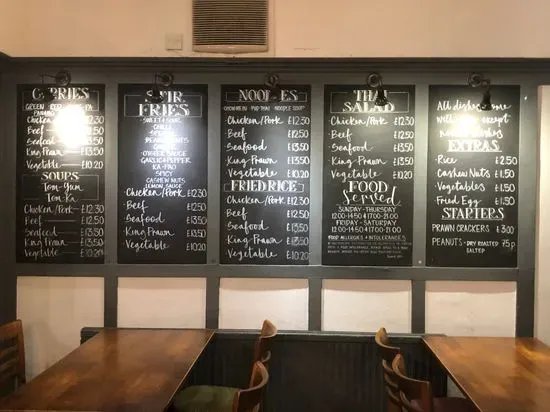 CURRIES
GREEN RED
Chicken/Pork £12.50
Beef
Seafood
King Prawn £13.50
Vegetable £10.20
SOUPS
Tom-Yum
Tom-Ka
Chicken/Pork £12.50
Beef £12.50
Seafood £13.50
King Prawn £13.50
Vegetable £10.20
STIR
FRIES
SWEET & SOUR
CHILLI
OYSTER SAUCE
GARLIC & PEPPER
KA-PAO
SPICY
CASHEW NUTS
LEMON SAUCE
Chicken/Pork £12.50
Beef £12.50
Seafood £13.50
King Prawn £13.50
Vegetable £10.20
NOODLES
CHOW MEIN PAD THAI NOODLE SOUP
Chicken/Pork £12.50
Beef £12.50
Seafood £13.50
King Prawn £13.50
Vegetable £10.20
FRIED RICE
Chicken/Pork £12.50
Beef £12.50
Seafood £13.50
King Prawn £13.50
Vegetable £10.20
THAI
SALAD
Chicken/Pork £12.50
Beef £12.50
Seafood £13.50
King Prawn £13.50
Vegetable £10.20
FOOD
Served
SUNDAY - THURSDAY
12:00-14:50 & 17:00-21:00
FRIDAY - SATURDAY
12:00-14:50 & 17:00-21:00
FOOD ALLERGIES & INTOLERANCES
All dishes come
with rice except
noodle dishes
EXTRAS
Rice £2.50
Cashew Nuts £1.50
Vegetables £1.50
Fried Egg £1.50
STARTERS
PRAWN CRACKERS £3.00
PEANUTS - DRY ROASTED 75p
SALTED